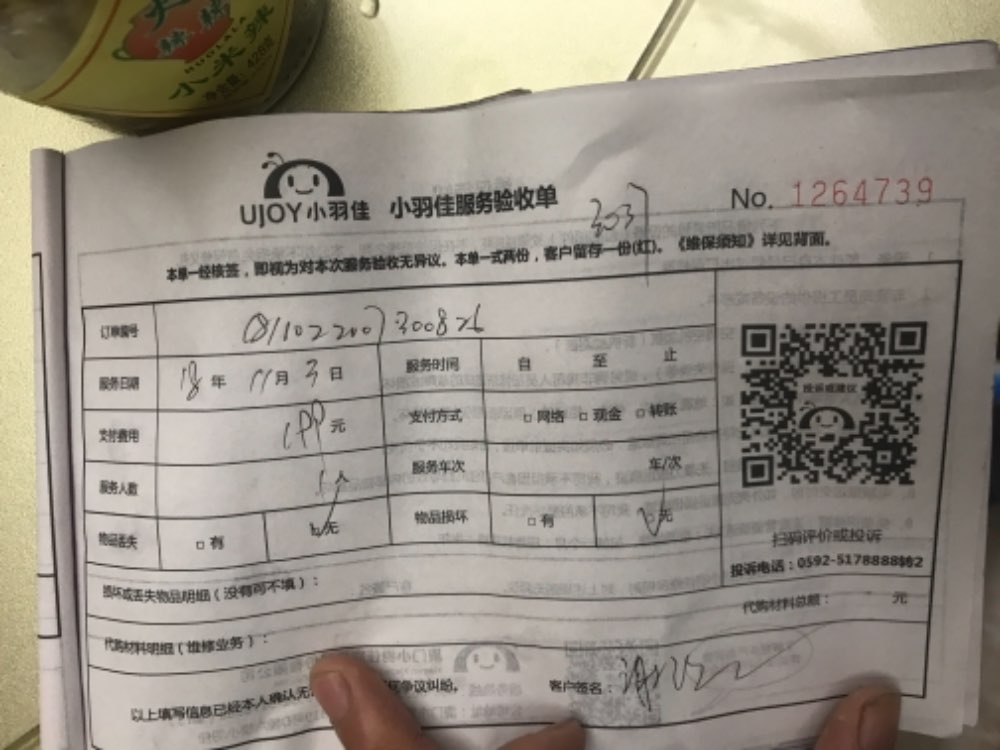 辣辣
HUOLALA
小米辣
净含量: 426g
UJOY 小羽佳 小羽佳服务验收单 No. 1264739
3037
本单一经核签，即视为对本次服务验收无异议。本单一式两份，客户留存一份(红)。《维保须知》详见背面。
订单编号
服务日期 18 年 11 月 3 日 服务时间 自 至 止
支付费用 199 元 支付方式 □ 网络 □ 现金 □ 转账
服务人数 服务车次 车/次
物品丢失 □ 有 无 物品损坏 □ 有 无
投诉或建议
扫码评价或投诉
投诉电话：0592-5178888转2
损坏或丢失物品明细（没有可不填）：
代购材料总额： 元
代购材料明细（维修业务）：
以上填写信息已经本人确认无 争议纠纷。 客户签名：